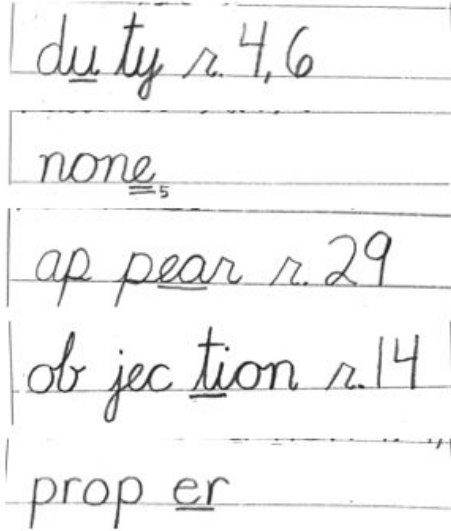 du ty r. 4, 6
none 5
ap pear r. 29
ob jec tion r. 14
prop er